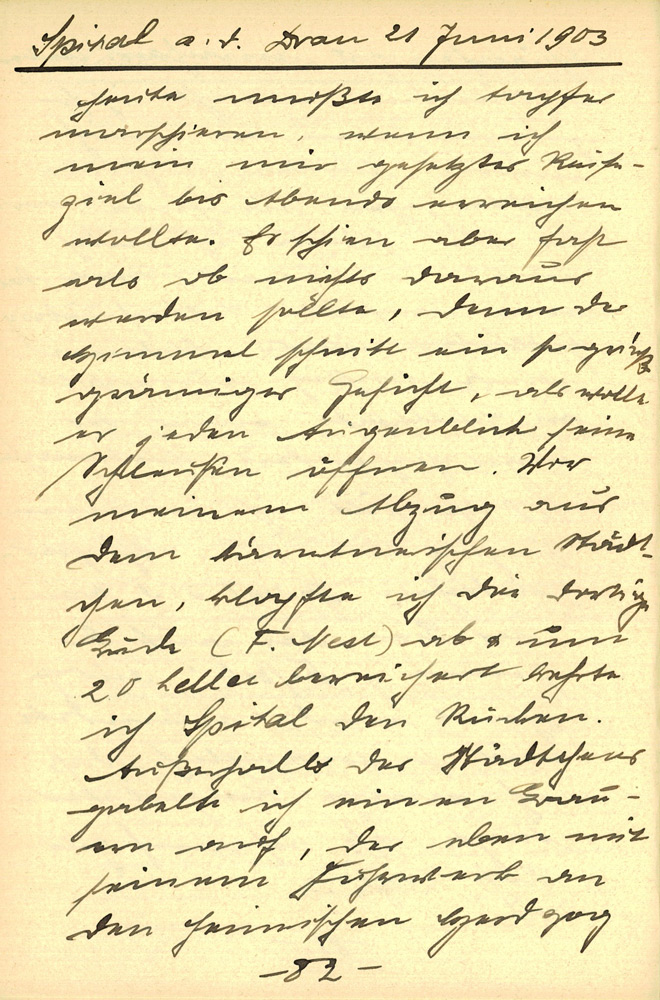 Spital a. d. Drau 21 Juni 1903
Heute mußte ich tapfer
marschieren, wenn ich
mein mir gesetztes Reise-
ziel bis Abends erreichen
wollte. Es schien aber fast
als ob nichts daraus
werden sollte, denn der
Himmel schnitt ein so gries
grämiges Gesicht, als wolle
er jeden Augenblick seine
Schleußen öffnen. Vor
meinem Abzug aus
dem kärntnerischen Städt-
chen, klopfte ich die dortige
Bude (F. Nest) ab & um
20 Heller bereichert kehrte
ich Spital den Rücken.
Außerhalb des Städtchens
gabelte ich einen Bau-
ern auf, der eben mit
seinem Fuhrwerk an
den heimischen Herd zog
-82-